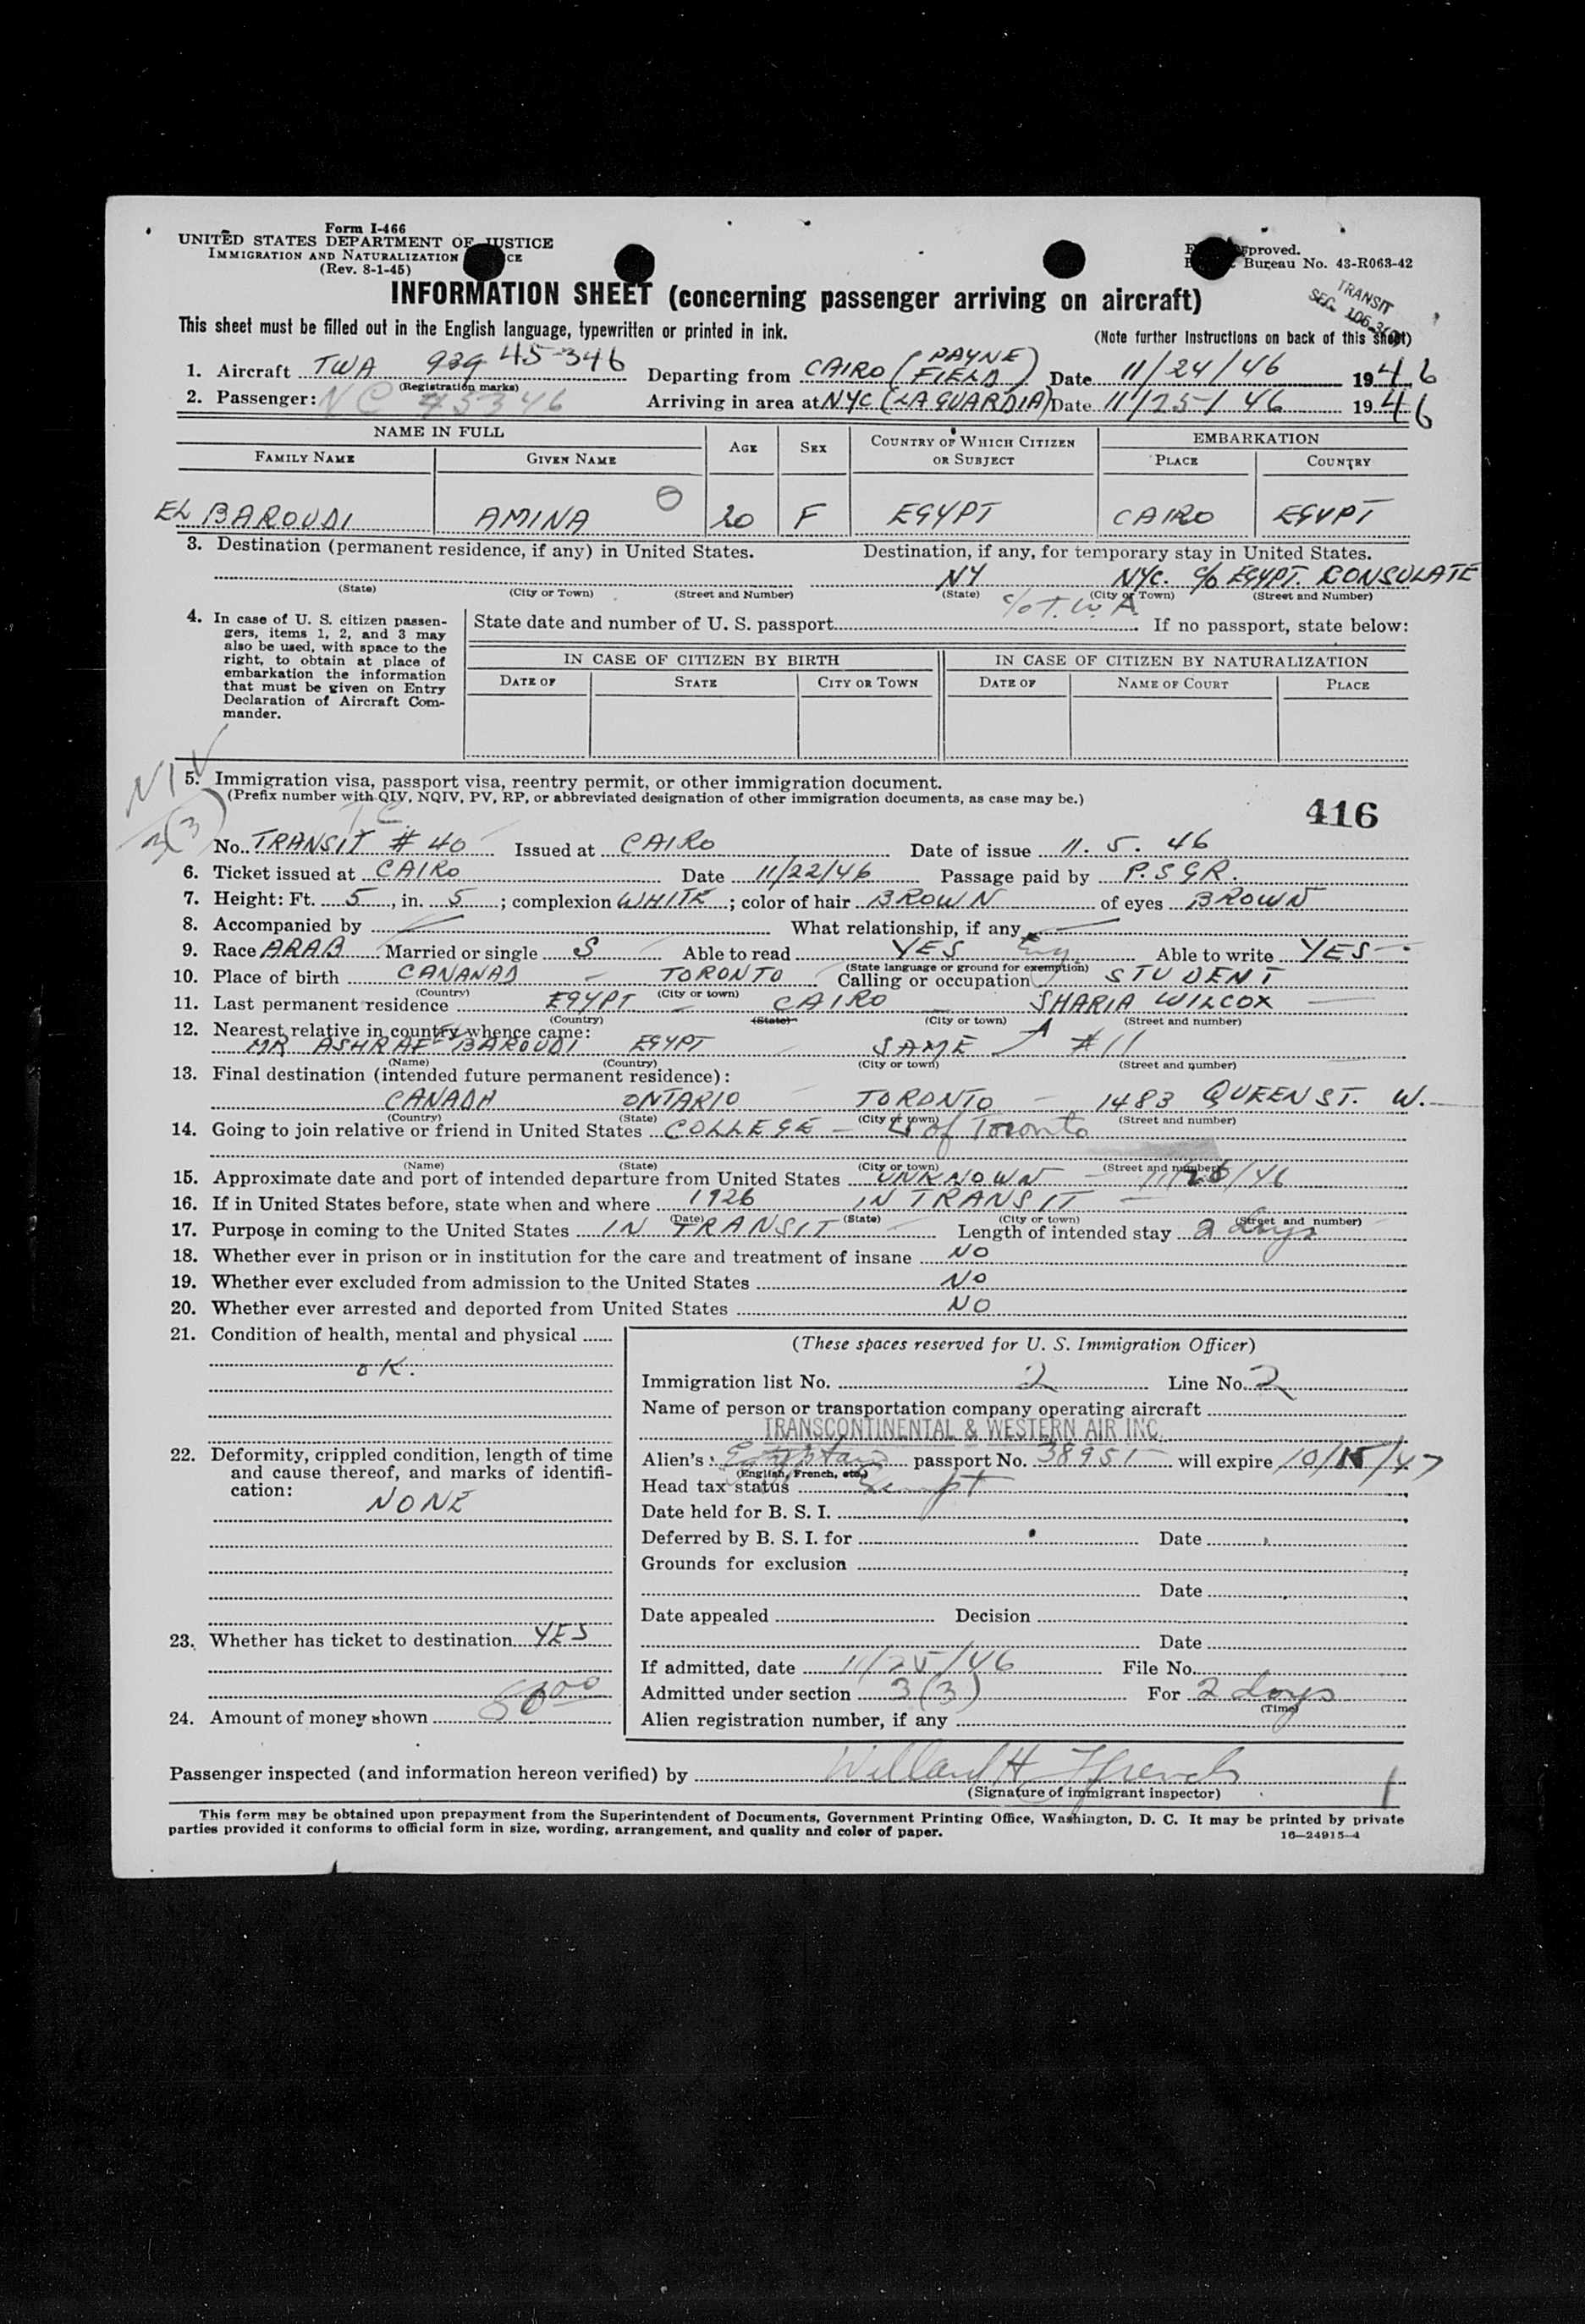 Form I-466
UNITED STATES DEPARTMENT OF JUSTICE
IMMIGRATION AND NATURALIZATION
(Rev. 8-1-45)
proved.
Bureau No. 43-R063-42
INFORMATION SHEET (concerning passenger arriving on aircraft)
TRANSIT
SEC. 106.3
This sheet must be filled out in the English language, typewritten or printed in ink.
(Note further instructions on back of this sheet)
1. Aircraft TWA 939 45-346 Departing from CAIRO (PAYNE FIELD) Date 11/24/46 1946
(Registration marks)
2. Passenger: NC 45346 Arriving in area at NYC (LA GUARDIA) Date 11/25/46 1946
NAME IN FULL AGE SEX COUNTRY OF WHICH CITIZEN OR SUBJECT EMBARKATION
FAMILY NAME GIVEN NAME PLACE COUNTRY
EL BAROUDI AMINA 20 F EGYPT CAIRO EGYPT
3. Destination (permanent residence, if any) in United States. Destination, if any, for temporary stay in United States.
NY NYC. c/o EGYPT. CONSULATE
(State) (City or Town) (Street and Number) (State) (City or Town) (Street and Number)
c/o T.W.A
4. In case of U. S. citizen passengers, items 1, 2, and 3 may also be used, with space to the right, to obtain at place of embarkation the information that must be given on Entry Declaration of Aircraft Commander.
State date and number of U. S. passport If no passport, state below:
IN CASE OF CITIZEN BY BIRTH IN CASE OF CITIZEN BY NATURALIZATION
DATE OF STATE CITY OR TOWN DATE OF NAME OF COURT PLACE
NIV
3(3)
5. Immigration visa, passport visa, reentry permit, or other immigration document.
(Prefix number with QIV, NQIV, PV, RP, or abbreviated designation of other immigration documents, as case may be.)
416
T.C.
No. TRANSIT # 40 Issued at CAIRO Date of issue 11. 5. 46
6. Ticket issued at CAIRO Date 11/22/46 Passage paid by P.S.G.R.
7. Height: Ft. 5, in. 5; complexion WHITE; color of hair BROWN of eyes BROWN
8. Accompanied by — What relationship, if any —
9. Race ARAB Married or single S Able to read YES Eng Able to write YES
(State language or ground for exemption)
10. Place of birth CANANAD - TORONTO Calling or occupation STUDENT
(Country) (City or town)
11. Last permanent residence EGYPT - CAIRO - SHARIA WILCOX
(Country) (State) (City or town) (Street and number)
12. Nearest relative in country whence came:
MR ASHRAF EL BAROUDI EGYPT SAME # 11
(Name) (Country) (City or town) (Street and number)
13. Final destination (intended future permanent residence):
CANADA ONTARIO TORONTO - 1483 QUEEN ST. W.
(Country) (State) (City or town) (Street and number)
14. Going to join relative or friend in United States COLLEGE - U of Toronto
(Name) (State) (City or town) (Street and number)
15. Approximate date and port of intended departure from United States UNKNOWN - 11/26/46
16. If in United States before, state when and where 1926 IN TRANSIT
(Date) (State) (City or town) (Street and number)
17. Purpose in coming to the United States IN TRANSIT Length of intended stay 2 days
18. Whether ever in prison or in institution for the care and treatment of insane NO
19. Whether ever excluded from admission to the United States NO
20. Whether ever arrested and deported from United States NO
21. Condition of health, mental and physical
OK.
22. Deformity, crippled condition, length of time and cause thereof, and marks of identification:
NONE
23. Whether has ticket to destination YES
24. Amount of money shown
(These spaces reserved for U. S. Immigration Officer)
Immigration list No. 2 Line No. 2
Name of person or transportation company operating aircraft
TRANSCONTINENTAL & WESTERN AIR INC.
Alien's Egyptian passport No. 38951 will expire 10/15/47
(English, French, etc.)
Head tax status Exempt
Date held for B. S. I.
Deferred by B. S. I. for Date
Grounds for exclusion
Date
Date appealed Decision
Date
If admitted, date 11/25/46 File No.
Admitted under section 3(3) For 2 days
(Time)
Alien registration number, if any
Passenger inspected (and information hereon verified) by Willard H
(Signature of immigrant inspector)
This form may be obtained upon prepayment from the Superintendent of Documents, Government Printing Office, Washington, D. C. It may be printed by private
parties provided it conforms to official form in size, wording, arrangement, and quality and color of paper.
16—24915-4